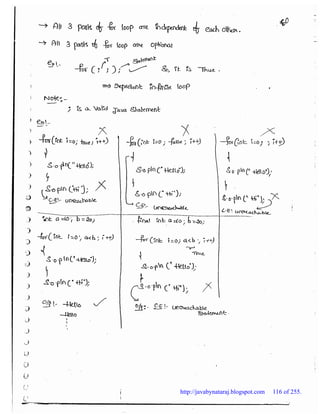 60
→ All 3 parts of for loop are independent of each other.
→ All 3 parts of for loop are optional
Ex:-
Statement
for ( ; ; ); ✓ So, it is True.
⇒ Represent infinite loop
Note:-
; is a Valid Java Statement
Ex:-
for(int i=0; true; i++)
{
S.o.pln("Hello");
}
S.o.pln("hi"); X
C.E:- unreachable
for(int i=0; false; i++)
{
S.o.pln("Hello");
}
S.o.pln("hi");
C.E:- unreachable
for(int i=0; ; i++)
{
S.o.pln("Hello");
}
S.o.pln("hi"); X
C.E: unreachable
int a=10, b=20;
for(int i=0; a<b; i++)
{
S.o.pln("Hello");
}
S.o.pln("hi");
O/P:- Hello ✓
Hello
final int a=10; b=20;
for(int i=0; a<b; i++)
True
{
S.o.pln("Hello");
}
S.o.pln("hi"); X
O/P:- C.E:- unreachable
Statement.
http://javabynataraj.blogspot.com 116 of 255.